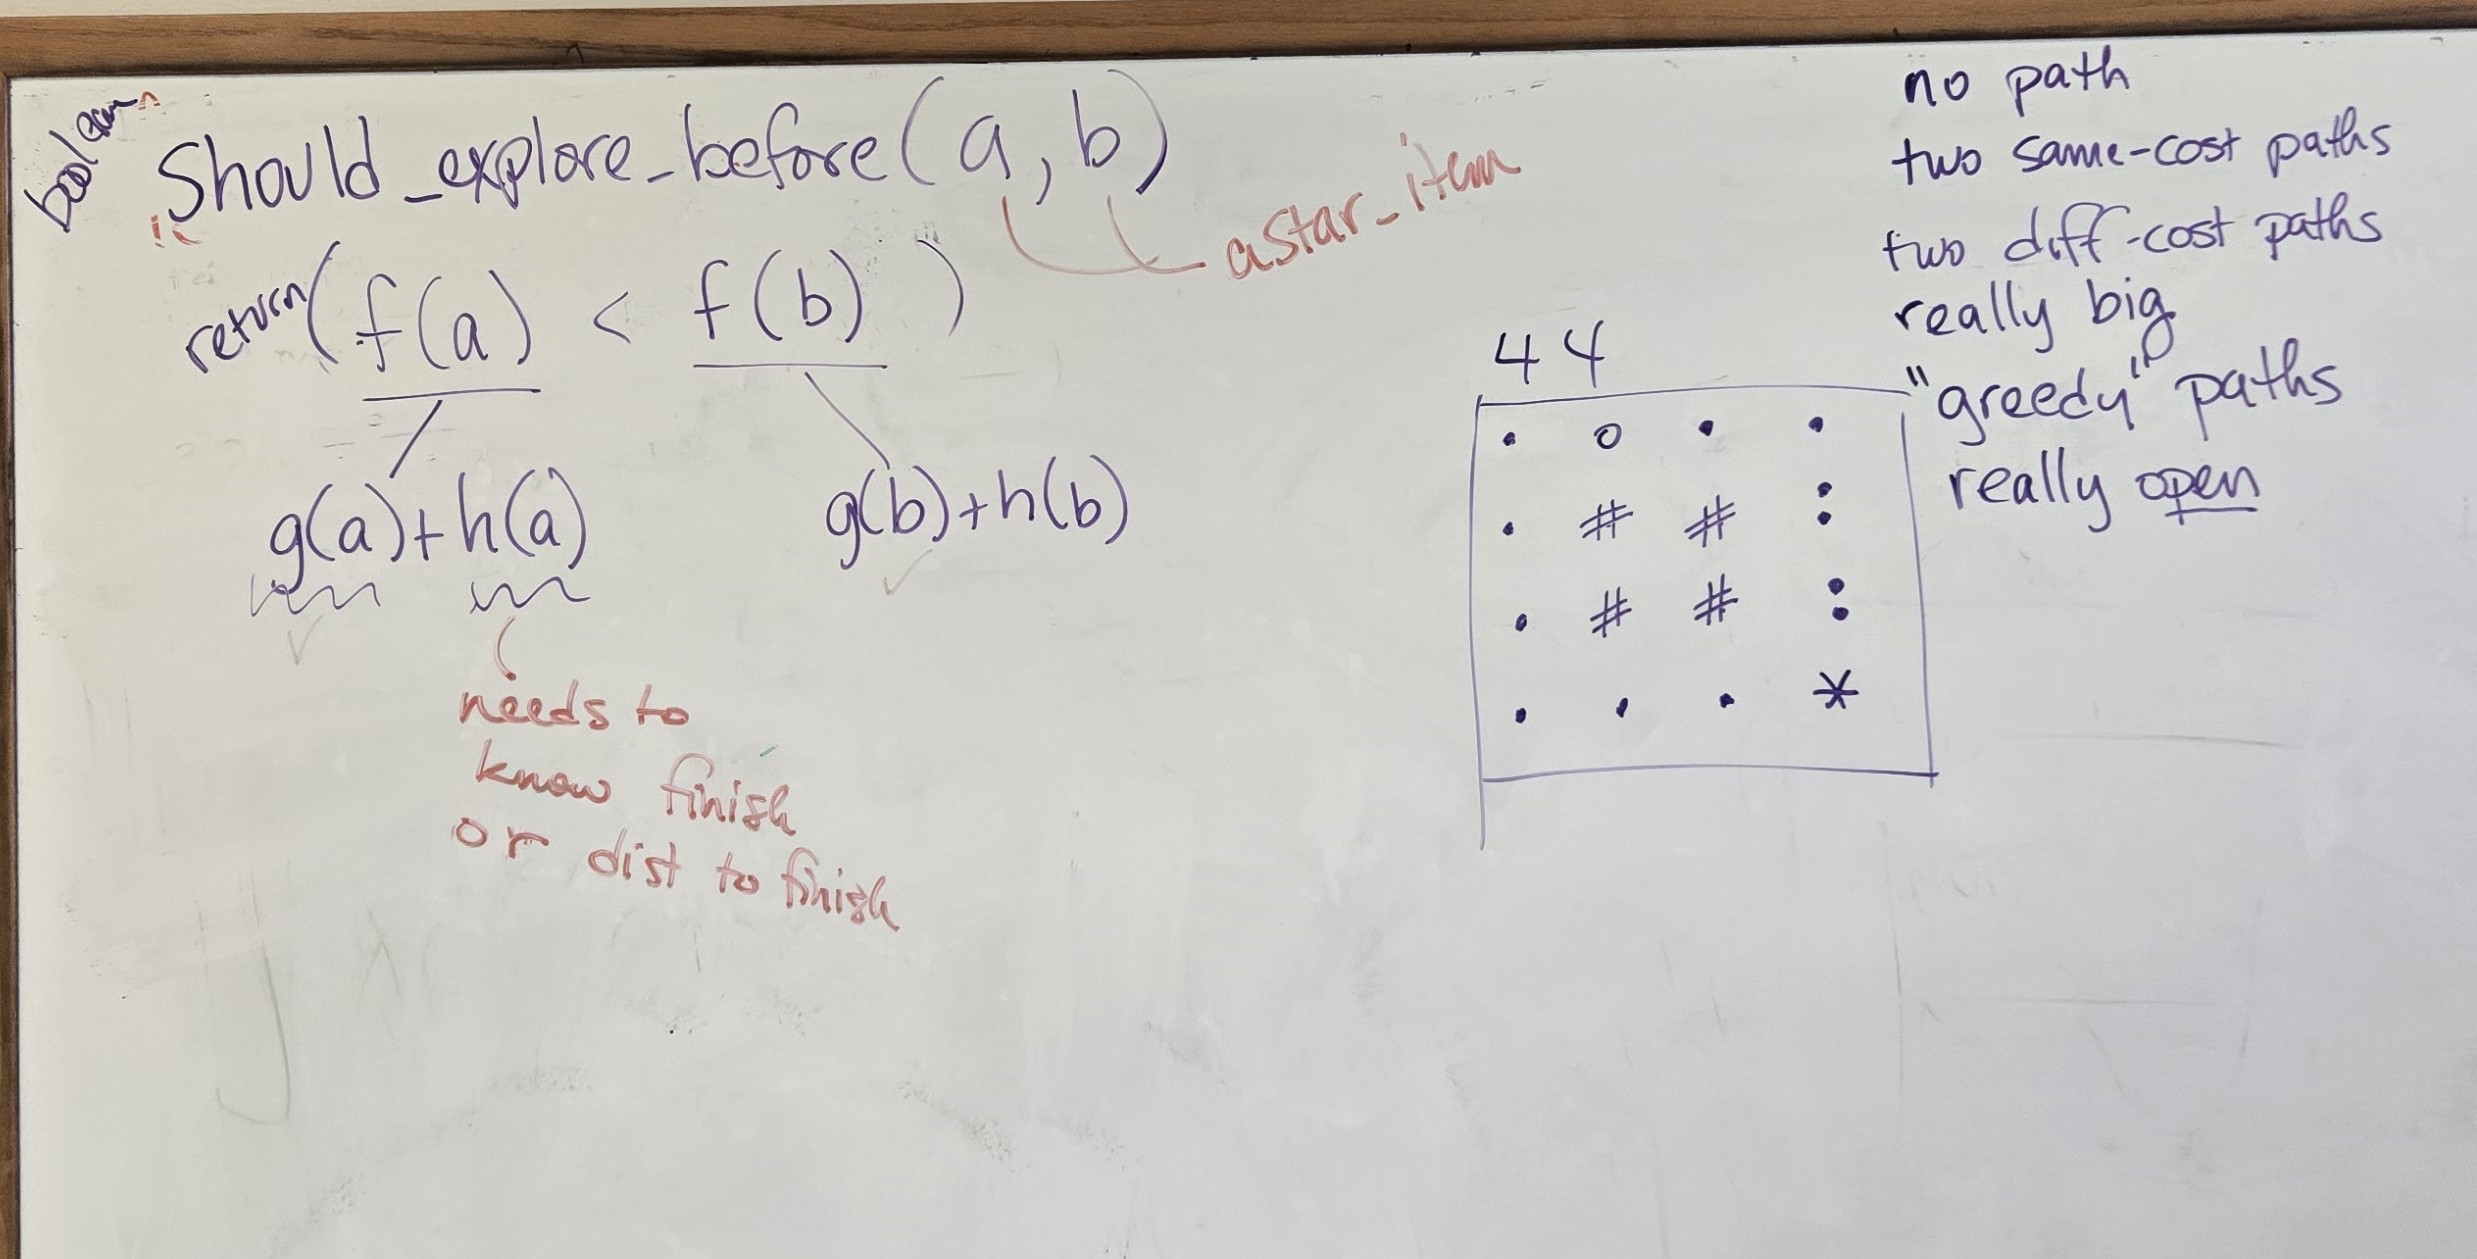 boolean
should_explore_before(a, b)
astar_item
return( f(a) < f(b) )
g(a)+h(a) g(b)+h(b)
needs to
know finish
or dist to finish
4 4
. o . .
. # # :
. # # :
. . . *
no path
two same-cost paths
two diff-cost paths
really big
"greedy" paths
really open